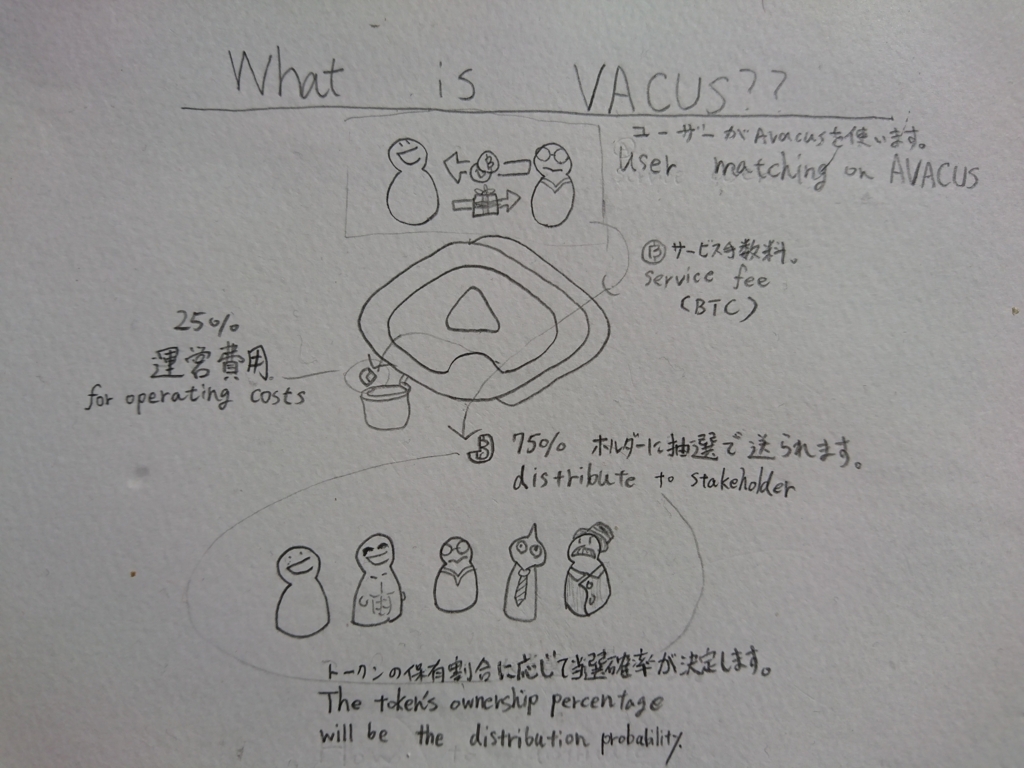 What is VACUS??
ユーザーがAvacusを使います。
User matching on AVACUS
Ⓑサービス手数料。
service fee
(BTC)
25%
運営費用
for operating costs
75% ホルダーに抽選で送られます。
distribute to stakeholder
トークンの保有割合に応じて当選確率が決定します。
The token's ownership percentage
will be the distribution probability.